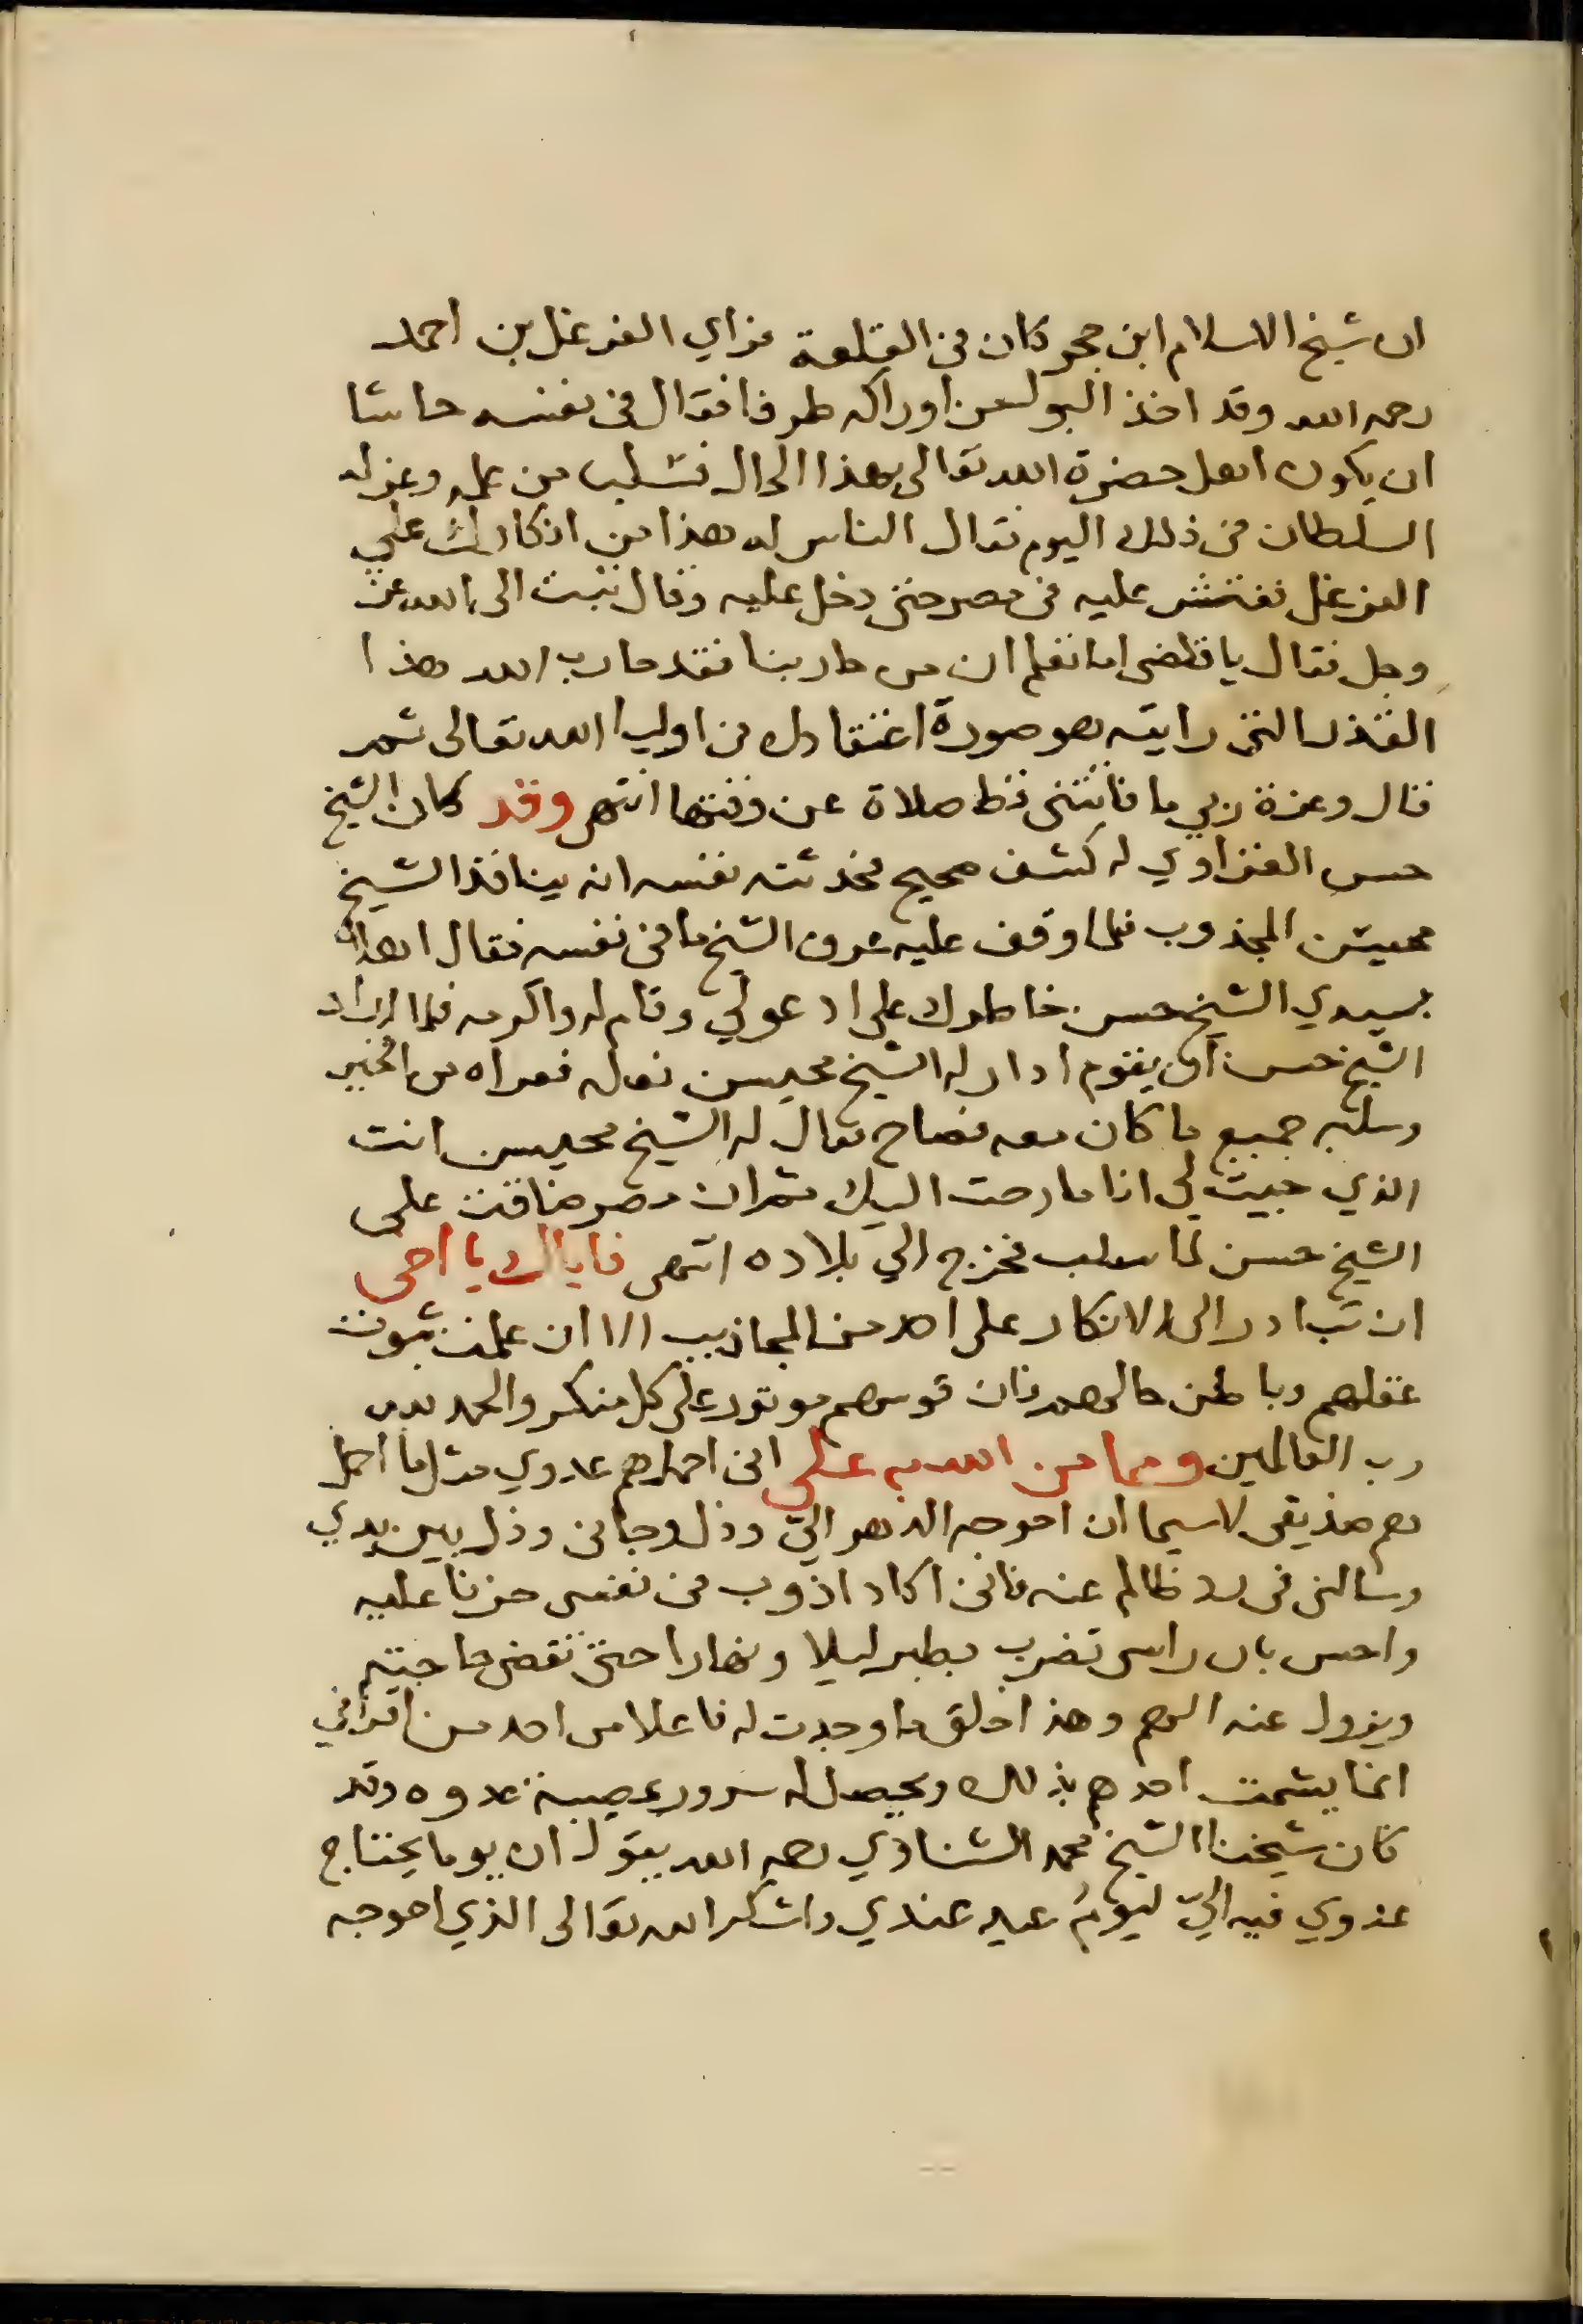 ان شيخ الاسلام ابن حجر كان في القلعة فراي الفرغل بن احمد
رحمه الله وقد اخذ البول من اوراكه طرفا فقال في نفسه حاشا
ان يكون اهل حضرة الله تعالى بهذا الحال فسلب من علمه وعزله
السلطان في ذلك اليوم فقال الناس له هذا من انكارك علي
الفرغل ففتش عليه في مصر حتى دخل عليه وقال تبت الى الله عز
وجل فقال يا قاضي اما تعلم ان من حاربنا فقد حارب الله هذا
القذر التي رايته هو صورة اعتقادك في اوليا الله تعالى ثم
قال وعزة ربي ما فاتتني قط صلاة عن وقتها انتهى وقد كان الشيخ
حسن العزاوي له كشف صحيح فحدثته نفسه انه ينافذ الشيخ
محيسن المجذوب فلما وقف عليه عرف الشيخ ما في نفسه فقال اهلا
بسيدي الشيخ حسن خاطرك علي ادعولي وقام له واكرمه فلما اراد
الشيخ حسن ان يقوم ادار له الشيخ محيسن نعله فعراه من الخير
وسلبه جميع ما كان معه فصاح فقال له الشيخ محيسن انت
الذي جيت لي انا ما رحت اليك ثم ان مصر ضاقت على
الشيخ حسن لما سلب فخرج الي بلاده انتهى فاياك يا اخي
ان تبادر الى الانكار على احد من المجاذيب الا ان علمت ثبوت
عقلهم وباطن حالهم فان قوسهم موتور على كل منكر والحمد لله
رب العالمين ومما من الله به علي انى احمل هم عدوي مثل ما احمل
هم صديقي لا سيما ان احوجه الدهر الي وذل وجانى وذل بين يدي
وسالنى في رد ظالم عنه فانى اكاد اذوب في نفسي حزنا عليه
واحس بان راسى تضرب بطبر ليلا ونهارا حتى تقضى حاجته
ويزول عنه الهم وهذا خلق ما وجدت له فاعلا من احد من اقرانى
انما يشمت احدهم بذلك ويحصل له سرور بمصيبة عدوه وقد
كان شيخنا الشيخ محمد الشناوي رحمه الله يقول ان يوما يحتاج
عدوي فيه اليّ ليوم عيد عندي واشكر الله تعالى الذي احوجه